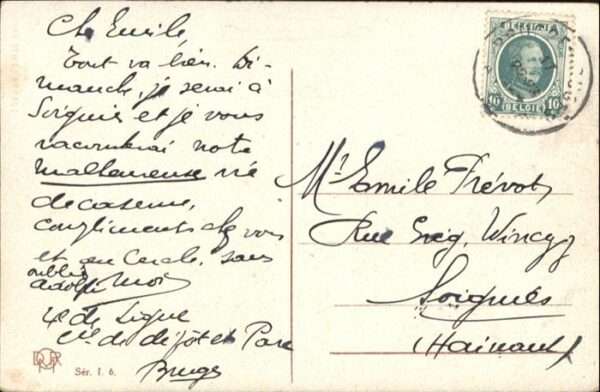 Ch Emile,
Tout va bien. Di-
manche, je serai à
Soignies et je vous
raconterai notre
malheureuse vie
de caserne,
compliments chez vous
et au Cercle, sans
oublier
Adolphe Moi
4e de Ligne
Cie de dépôt et Parc
Bruges
Sér. 1. 6.
BELGIE
10 BELGIE 10
Mr Emile Prévot,
Rue Grég. Wincqz
Soignies
(Hainaut)